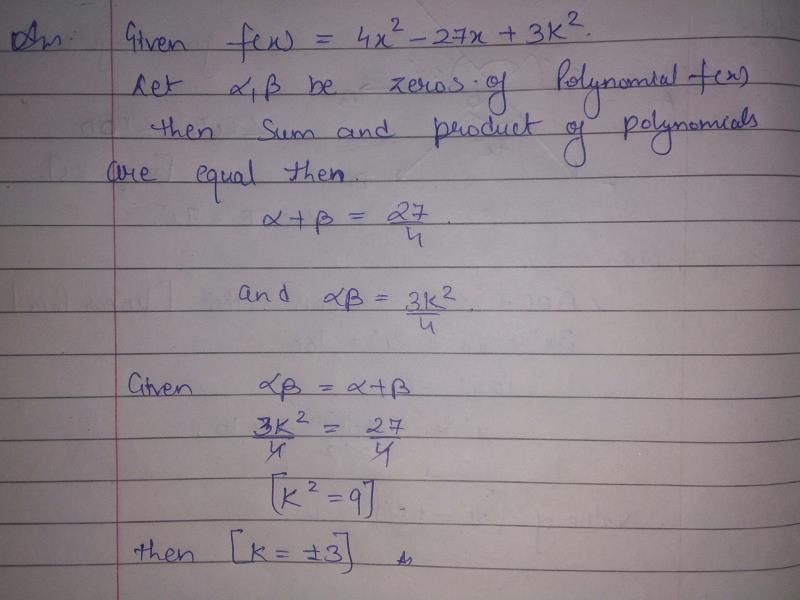 Ans. Given f(x) = 4x² - 27x + 3K².
Let α, β be zeros of Polynomial f(x)
then Sum and product of polynomials
are equal then.
α + β = 27/4.
and αβ = 3K²/4.
Given αβ = α + β
3K²/4 = 27/4
[K² = 9].
then [K = ±3]